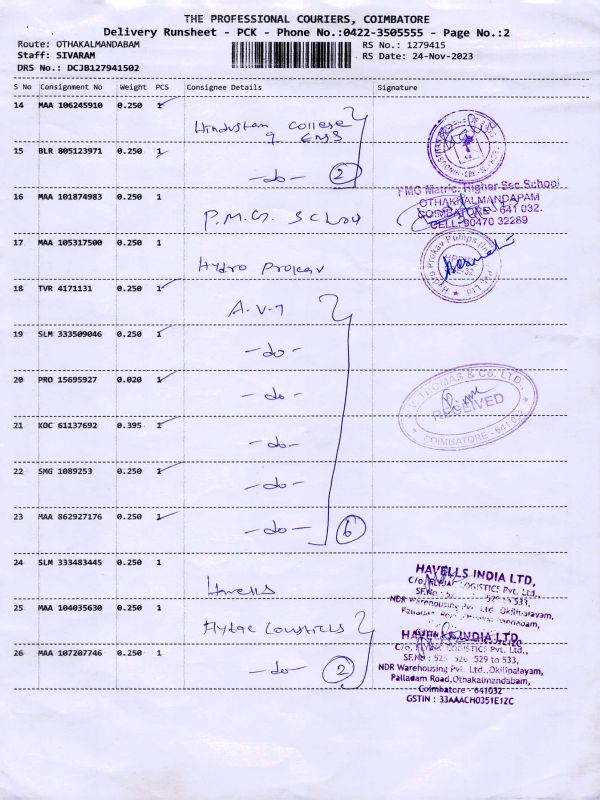 THE PROFESSIONAL COURIERS, COIMBATORE
Delivery Runsheet - PCK - Phone No.:0422-3505555 - Page No.:2
Route: OTHAKALMANDABAM RS No.: 1279415
Staff: SIVARAM RS Date: 24-Nov-2023
DRS No.: DCJB127941502
S No Consignment No Weight PCS Consignee Details Signature
14 MAA 106245910 0.250 1
Hindustan College
of Engg
15 BLR 805123971 0.250 1
-do- 2
16 MAA 101874983 0.250 1
P.M.G. School
PMG Matric. Higher Sec.School
OTHAKKALMANDAPAM
COIMBATORE - 641 032.
CELL: 80470 32289
17 MAA 105317500 0.250 1
Hydro Prokav
Hydro Prokav Pumps (In Pvt. Ltd.
18 TVR 4171131 0.250 1
A.V.T
19 SLM 333509046 0.250 1
-do-
20 PRO 15695927 0.020 1
-do-
THOMAS & Co. LTD.,
RECEIVED
COIMBATORE - 641 032
21 KOC 61137692 0.395 1
-do-
22 SMG 1089253 0.250 1
-do-
23 MAA 862927176 0.250 1
-do- 6
24 SLM 333483445 0.250 1
Havells
HAVELLS INDIA LTD,
C/o, FLYJAC LOGISTICS Pvt. Ltd.,
SF.No : 529 to 533,
NDR Warehousing Pvt. Ltd. Okilipalayam,
Palladam Road, Othakalmandabam,
25 MAA 104035630 0.250 1
Flyjac Logistics
26 MAA 107207746 0.250 1
-do- 2
HAVELLS INDIA LTD.
C/o, FLYJAC LOGISTICS Pvt. Ltd.,
SF.No : 525, 526, 529 to 533,
NDR Warehousing Pvt. Ltd., Okilipalayam,
Palladam Road, Othakalmandabam,
Coimbatore - 641032
GSTIN : 33AAACH0351E1ZC